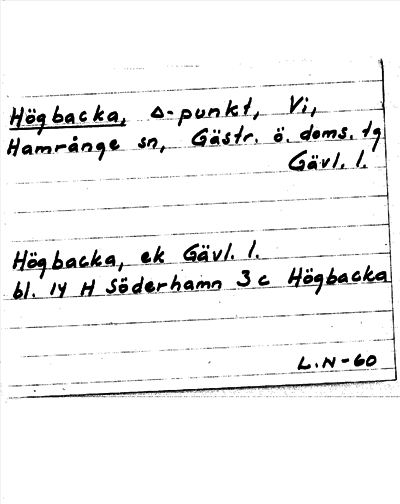 Högbacka, Δ-punkt, Vi,
Hamrånge sn, Gästr. ö. doms. tg
Gävl. l.
Högbacka, ek Gävl. l.
bl. 14 H Söderhamn 3 c Högbacka
L.N-60